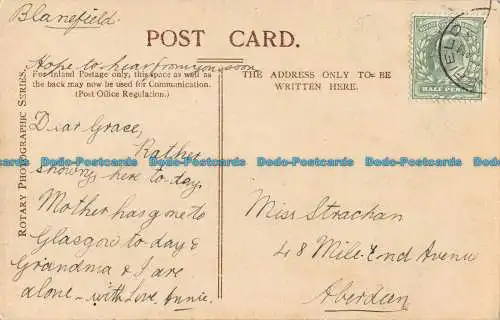 Blanefield.
POST CARD.
Hope to hear from you soon
For Inland Postage only, this space as well as
the back may now be used for Communication.
(Post Office Regulation.)
THE ADDRESS ONLY TO BE
WRITTEN HERE.
HALF PENNY
FIELD
ROTARY PHOTOGRAPHIC SERIES.
Dear Grace,
Rather
showery here to-day
Mother has gone to
Glasgow to-day &
Grandma & I are
alone - with Love, Annie.
Miss Strachan
48 Mile-End Avenue
Aberdeen
Dodo-Postcards Dodo-Postcards Dodo-Postcards Dodo-Postcards